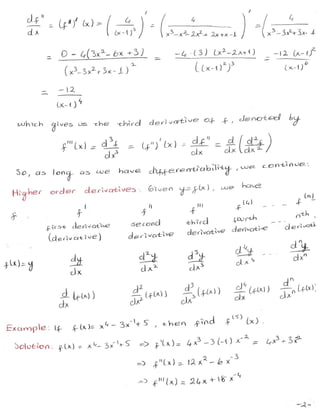 df''/dx = (f'')'(x) = (4/(x-1)³)' = (4/(x³-x²-2x²+2x+x-1))' = (4/(x³-3x²+3x-1
= (0-4(3x²-6x+3))/(x³-3x²+3x-1)² = (-4·(3)(x²-2x+1))/((x-1)³)² = (-12(x-1)²)/(x-1)⁶
= -12/(x-1)⁴
which gives us the third derivative of f, denoted by
f'''(x) = d³f/dx³ = (f'')'(x) = df''/dx = d/dx (d²f/dx²)
So, as long as we have differentiability, we continue:
Higher order derivatives: Given y=f(x), we have
f f' f'' f''' f⁽⁴⁾ --- f⁽ⁿ⁾
first derivative second third fourth --- nth
(derivative) derivative derivative derivative derivati
f(x)=y dy/dx d²y/dx² d³y/dx³ d⁴y/dx⁴ dⁿy/dxⁿ
d/dx (f(x)) d²/dx² (f(x)) d³/dx³ (f(x)) d⁴/dx⁴ (f(x)) dⁿ/dxⁿ (f(x)
Example: If f(x) = x⁴ - 3x⁻¹+5, then find f⁽⁵⁾(x).
Solution: f(x) = x⁴-3x⁻¹+5 => f'(x) = 4x³-3(-1)x⁻² = 4x³+3x⁻²
=> f''(x) = 12x²-6x⁻³
=> f'''(x) = 24x+18x⁻⁴
-2-